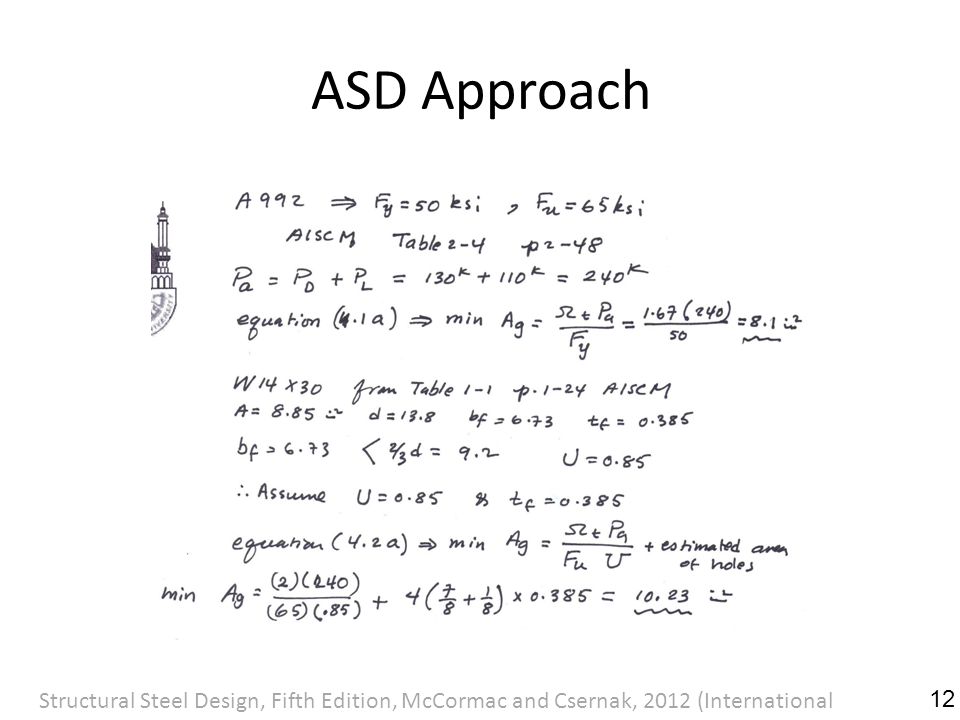 ASD Approach
A992 ⇒ Fy = 50 ksi , Fu = 65 ksi
AISCM Table 2-4 p2-48
Pa = PD + PL = 130k + 110k = 240k
equation (4.1a) ⇒ min Ag = Ωt Pa / Fy = 1.67(240) / 50 = 8.1 in2
W14 x30 from Table 1-1 p.1-24 AISCM
A = 8.85 in2 d = 13.8 bf = 6.73 tf = 0.385
bf = 6.73 < 2/3 d = 9.2 U = 0.85
∴ Assume U = 0.85 & tf = 0.385
equation (4.2a) ⇒ min Ag = Ωt Pa / Fu U + estimated area of holes
min Ag = (2)(240) / (65)(.85) + 4(7/8 + 1/8) x 0.385 = 10.23 in2
Structural Steel Design, Fifth Edition, McCormac and Csernak, 2012 (International
12